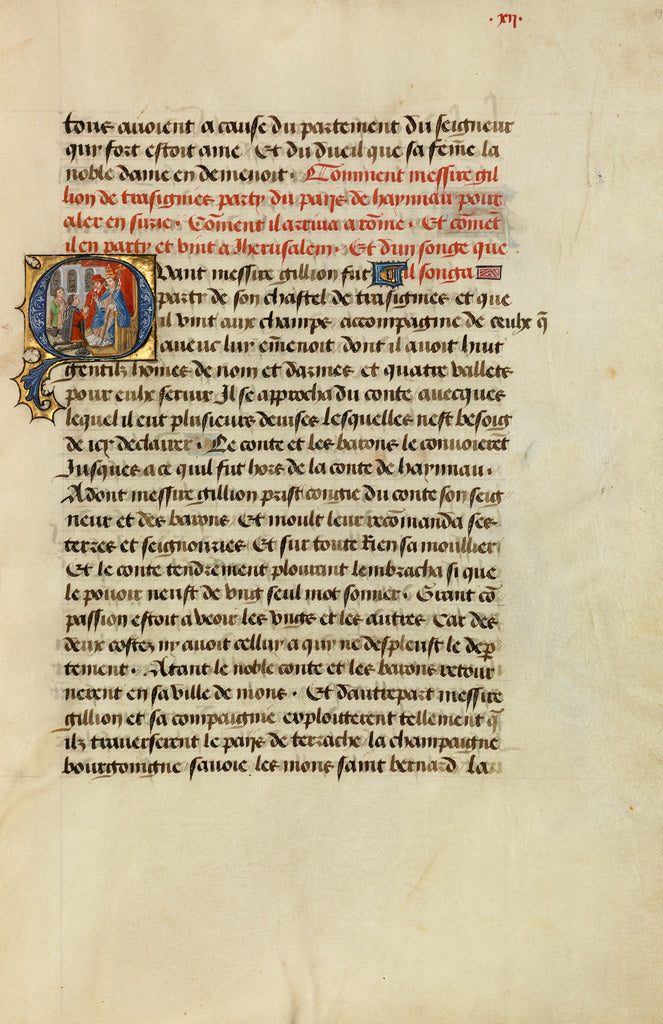 ·xij·
tous auoient a cause du partement du seigneur
quy fort estoit ame Et du dueil que sa fem̄e la
noble dame en demenoit· Comment messire gil
lion de trasignies party du pays de haynnau pour
aler en surie· Cōment il arriua a rōme· Et cōmēt
il en party et vint a Jherusalem· Et dun songe que
Quant messire gillion fut il songa
party de son chastel de trasignies et que
il vint aux champs accompagnie de ceulx q̄
auecuc luy em̄enoit dont il auoit huit
gentilz hōmes de nom et darmes et quatre vallets
pour eulx seruir Il se approcha du conte auecques
lequel il eut plusieurs deuises lesquelles nest besoig
de icy declairer· Le conte et les barons le conuoierēt
Jusques a ce quil fut hors de la conte de haynnau·
Adont messire gillion prist congie du conte son seig
neur et des barons Et moult leur recōmanda ses
terres et seignouries Et sur toute Rien sa moullier
Et le conte tendrement plourant lembracha si que
le pouoir neust de vng seul mot sonner· Grant cō
passion estoit a veoir les vngs et les autres Car des
deux costez ny auoit celluy a quy ne despleust le dep̄
tement· Atant le noble conte et les barons retour
nerent en sa ville de mons· Et dautrepart messire
gillion et sa compaignie exploitterent tellement q̄
ilz trauerserent le pays de terrache la champaigne
bourgoingne sauoie les mons saint bernard la